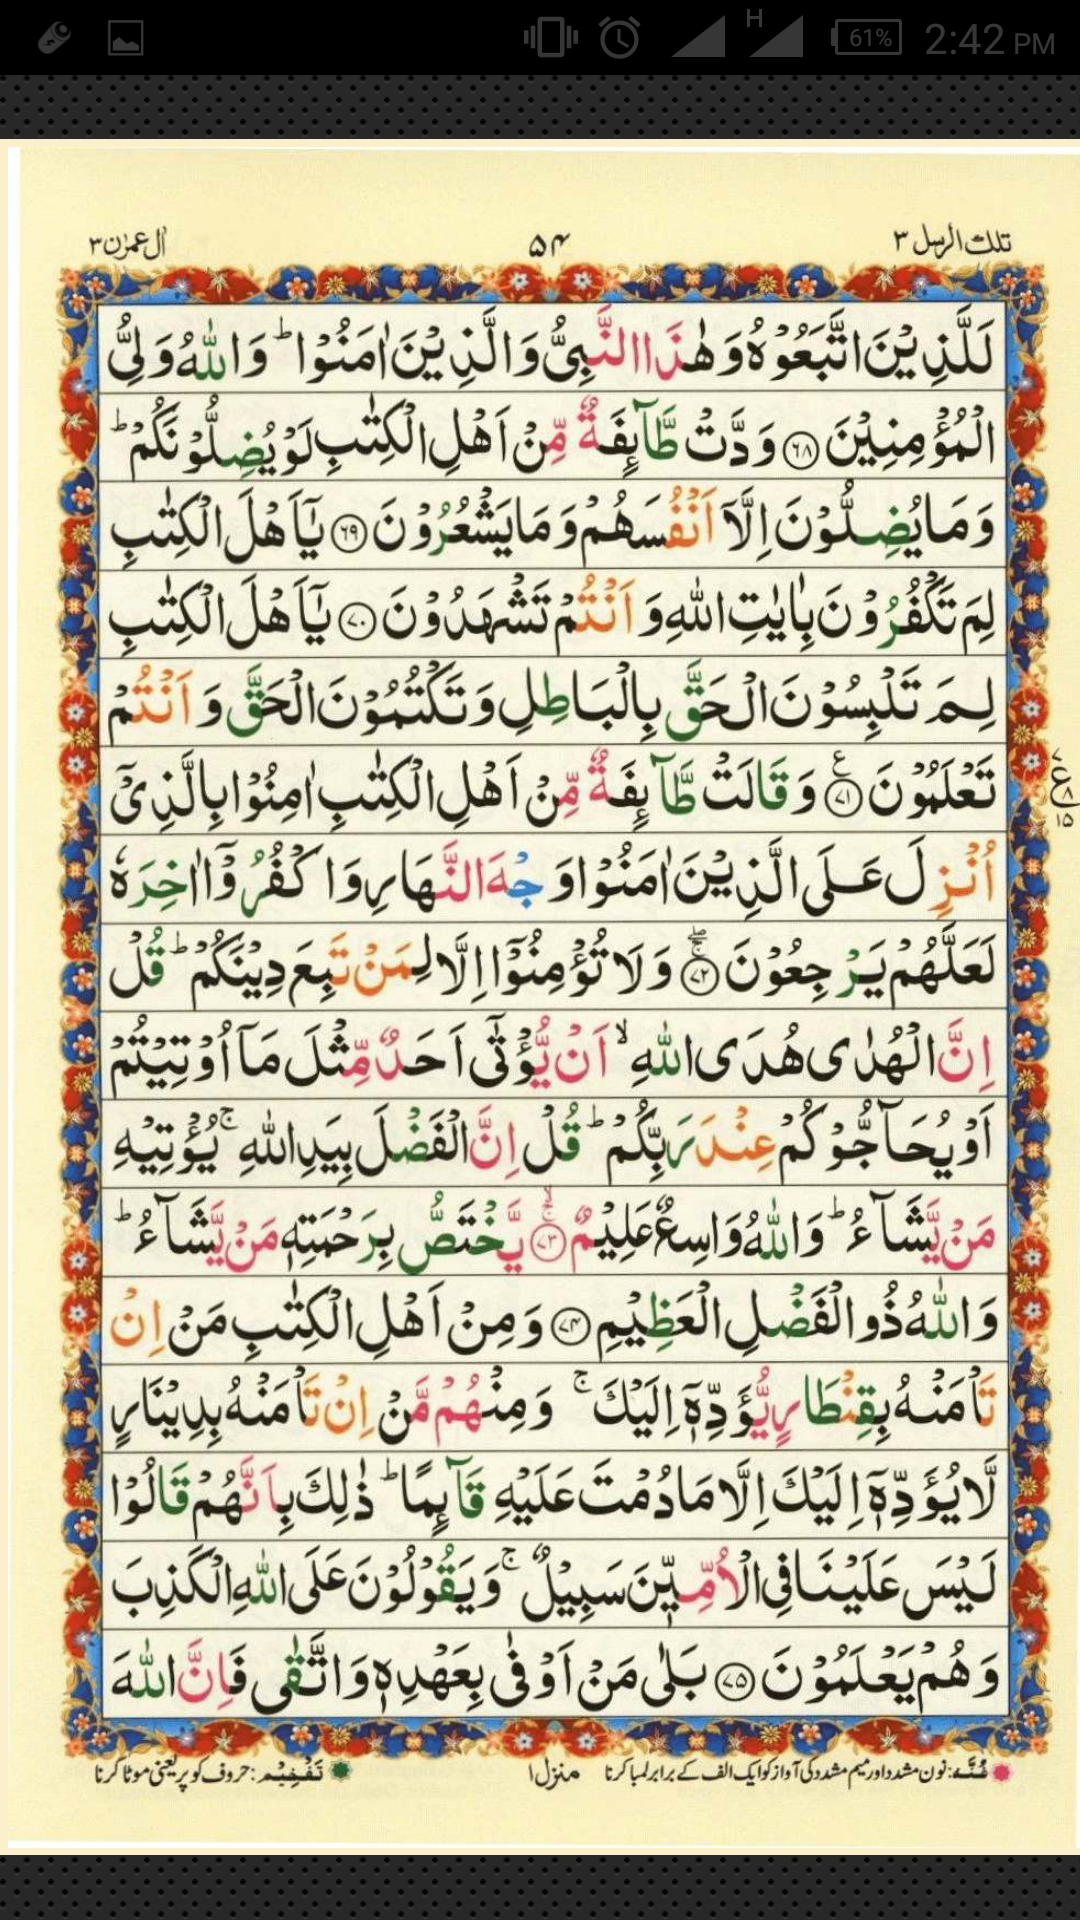 H 61% 2:42 PM
تلك الرسل ٣ ۵۴ اٰل عمرٰن ٣
لَلَّذِيْنَ اتَّبَعُوْهُ وَهٰذَا النَّبِىُّ وَالَّذِيْنَ اٰمَنُوْا ؕ وَاللّٰهُ وَلِىُّ
الْمُؤْمِنِيْنَ ﴿۶۸﴾ وَدَّتْ طَّآئِفَةٌ مِّنْ اَهْلِ الْكِتٰبِ لَوْ يُضِلُّوْنَكُمْ ؕ
وَمَا يُضِلُّوْنَ اِلَّاۤ اَنْفُسَهُمْ وَمَا يَشْعُرُوْنَ ﴿۶۹﴾ يٰۤاَهْلَ الْكِتٰبِ
لِمَ تَكْفُرُوْنَ بِاٰيٰتِ اللّٰهِ وَاَنْتُمْ تَشْهَدُوْنَ ﴿۷۰﴾ يٰۤاَهْلَ الْكِتٰبِ
لِمَ تَلْبِسُوْنَ الْحَقَّ بِالْبَاطِلِ وَتَكْتُمُوْنَ الْحَقَّ وَاَنْتُمْ
تَعْلَمُوْنَ ﴿۷۱﴾ ع وَقَالَتْ طَّآئِفَةٌ مِّنْ اَهْلِ الْكِتٰبِ اٰمِنُوْا بِالَّذِىْۤ
ع ٧ ٨ ١۵
اُنْزِلَ عَلَى الَّذِيْنَ اٰمَنُوْا وَجْهَ النَّهَارِ وَاكْفُرُوْۤا اٰخِرَهٗ
لَعَلَّهُمْ يَرْجِعُوْنَ ﴿۷۲﴾ ۚۖ وَلَا تُؤْمِنُوْۤا اِلَّا لِمَنْ تَبِعَ دِيْنَكُمْ ؕ قُلْ
اِنَّ الْهُدٰى هُدَى اللّٰهِ ۙ اَنْ يُّؤْتٰٓى اَحَدٌ مِّثْلَ مَاۤ اُوْتِيْتُمْ
اَوْ يُحَآجُّوْكُمْ عِنْدَ رَبِّكُمْ ؕ قُلْ اِنَّ الْفَضْلَ بِيَدِ اللّٰهِ ۚ يُؤْتِيْهِ
مَنْ يَّشَآءُ ؕ وَاللّٰهُ وَاسِعٌ عَلِيْمٌ ﴿۷۳﴾ ۚۙ يَّخْتَصُّ بِرَحْمَتِهٖ مَنْ يَّشَآءُ ؕ
وَاللّٰهُ ذُو الْفَضْلِ الْعَظِيْمِ ﴿۷۴﴾ وَمِنْ اَهْلِ الْكِتٰبِ مَنْ اِنْ
تَاْمَنْهُ بِقِنْطَارٍ يُّؤَدِّهٖۤ اِلَيْكَ ۚ وَمِنْهُمْ مَّنْ اِنْ تَاْمَنْهُ بِدِيْنَارٍ
لَّا يُؤَدِّهٖۤ اِلَيْكَ اِلَّا مَا دُمْتَ عَلَيْهِ قَآئِمًا ؕ ذٰلِكَ بِاَنَّهُمْ قَالُوْا
لَيْسَ عَلَيْنَا فِى الْاُمِّيّٖنَ سَبِيْلٌ ۚ وَيَقُوْلُوْنَ عَلَى اللّٰهِ الْكَذِبَ
وَهُمْ يَعْلَمُوْنَ ﴿۷۵﴾ بَلٰى مَنْ اَوْفٰى بِعَهْدِهٖ وَاتَّقٰى فَاِنَّ اللّٰهَ
غُنَّه: نون مشدد اور میم مشدد کی آواز کو ایک الف کے برابر لمبا کرنا منزل ١ تَفْخِیْم: حروف کو پر یعنی موٹا کرنا